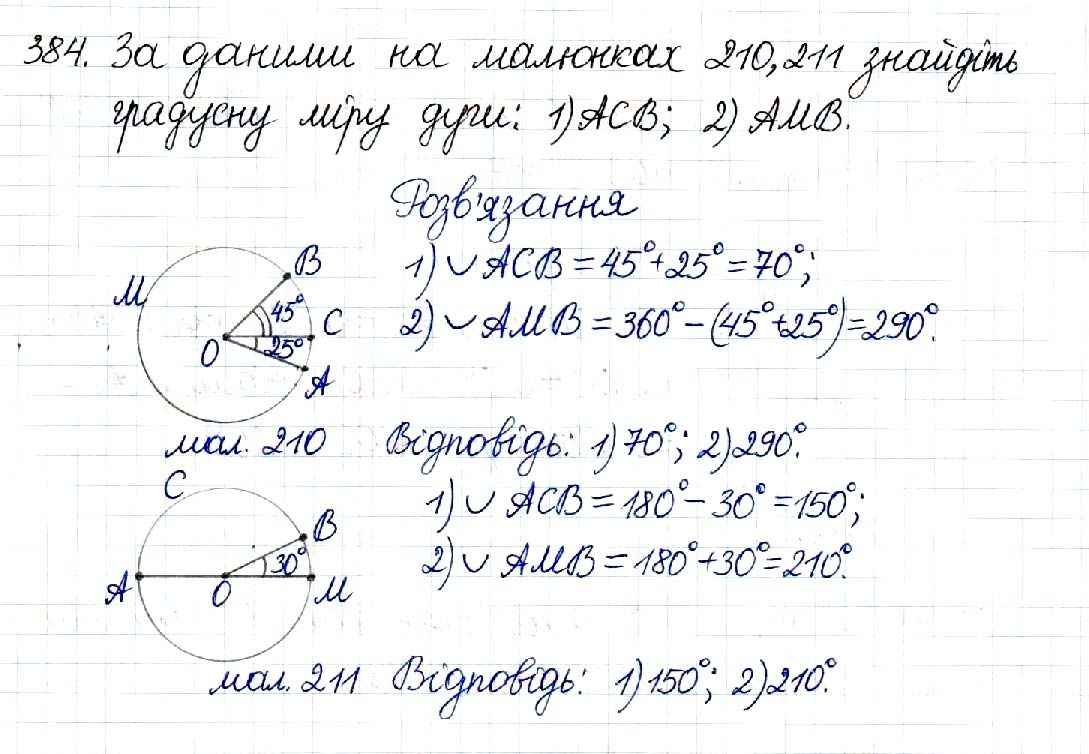 384. За даними на малюнках 210, 211 знайдіть
градусну міру дуги: 1) ACB; 2) AMB.
Розв'язання
1) ∪ ACB = 45° + 25° = 70°;
2) ∪ AMB = 360° – (45° + 25°) = 290°.
M
B
45°
C
O
25°
A
мал. 210
Відповідь: 1) 70°; 2) 290°.
1) ∪ ACB = 180° – 30° = 150°;
2) ∪ AMB = 180° + 30° = 210°.
C
B
30°
A
O
M
мал. 211
Відповідь: 1) 150°; 2) 210°.